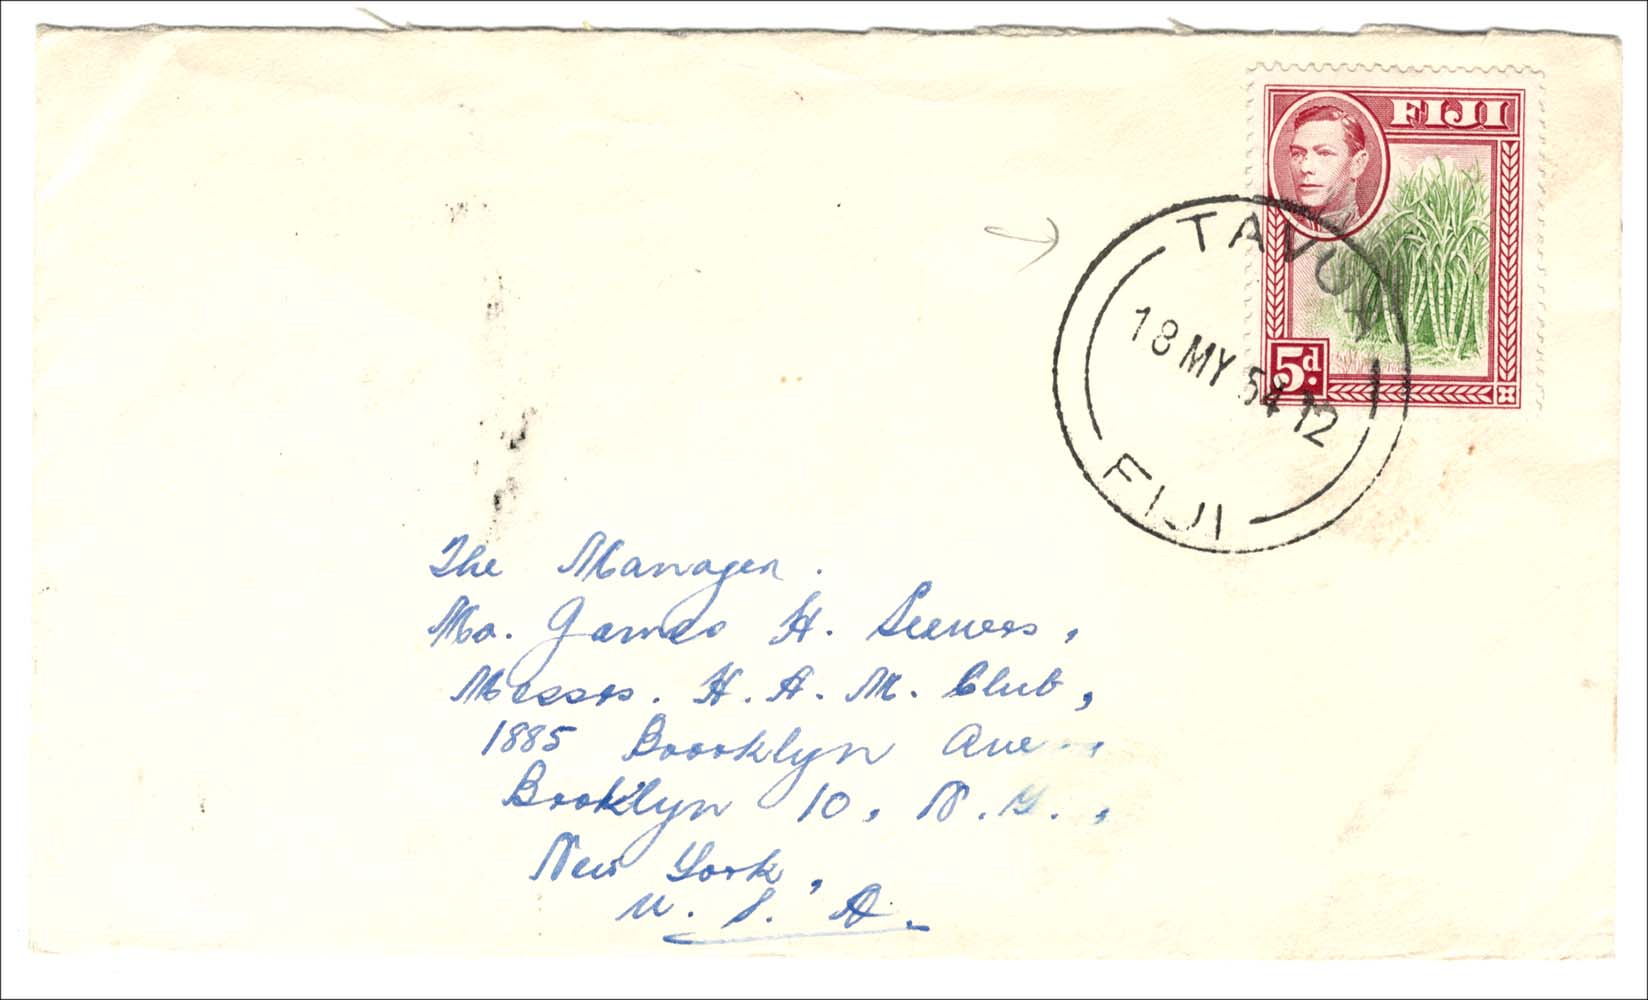 FIJI
5d.
TAVUA
18 MY 54 12
FIJI
The Manager.
Mr. James H. Seewers,
Messrs. H. A. M. Club,
1885 Brooklyn Ave.,
Brooklyn 10, N. Y.,
New York,
U. S. A.